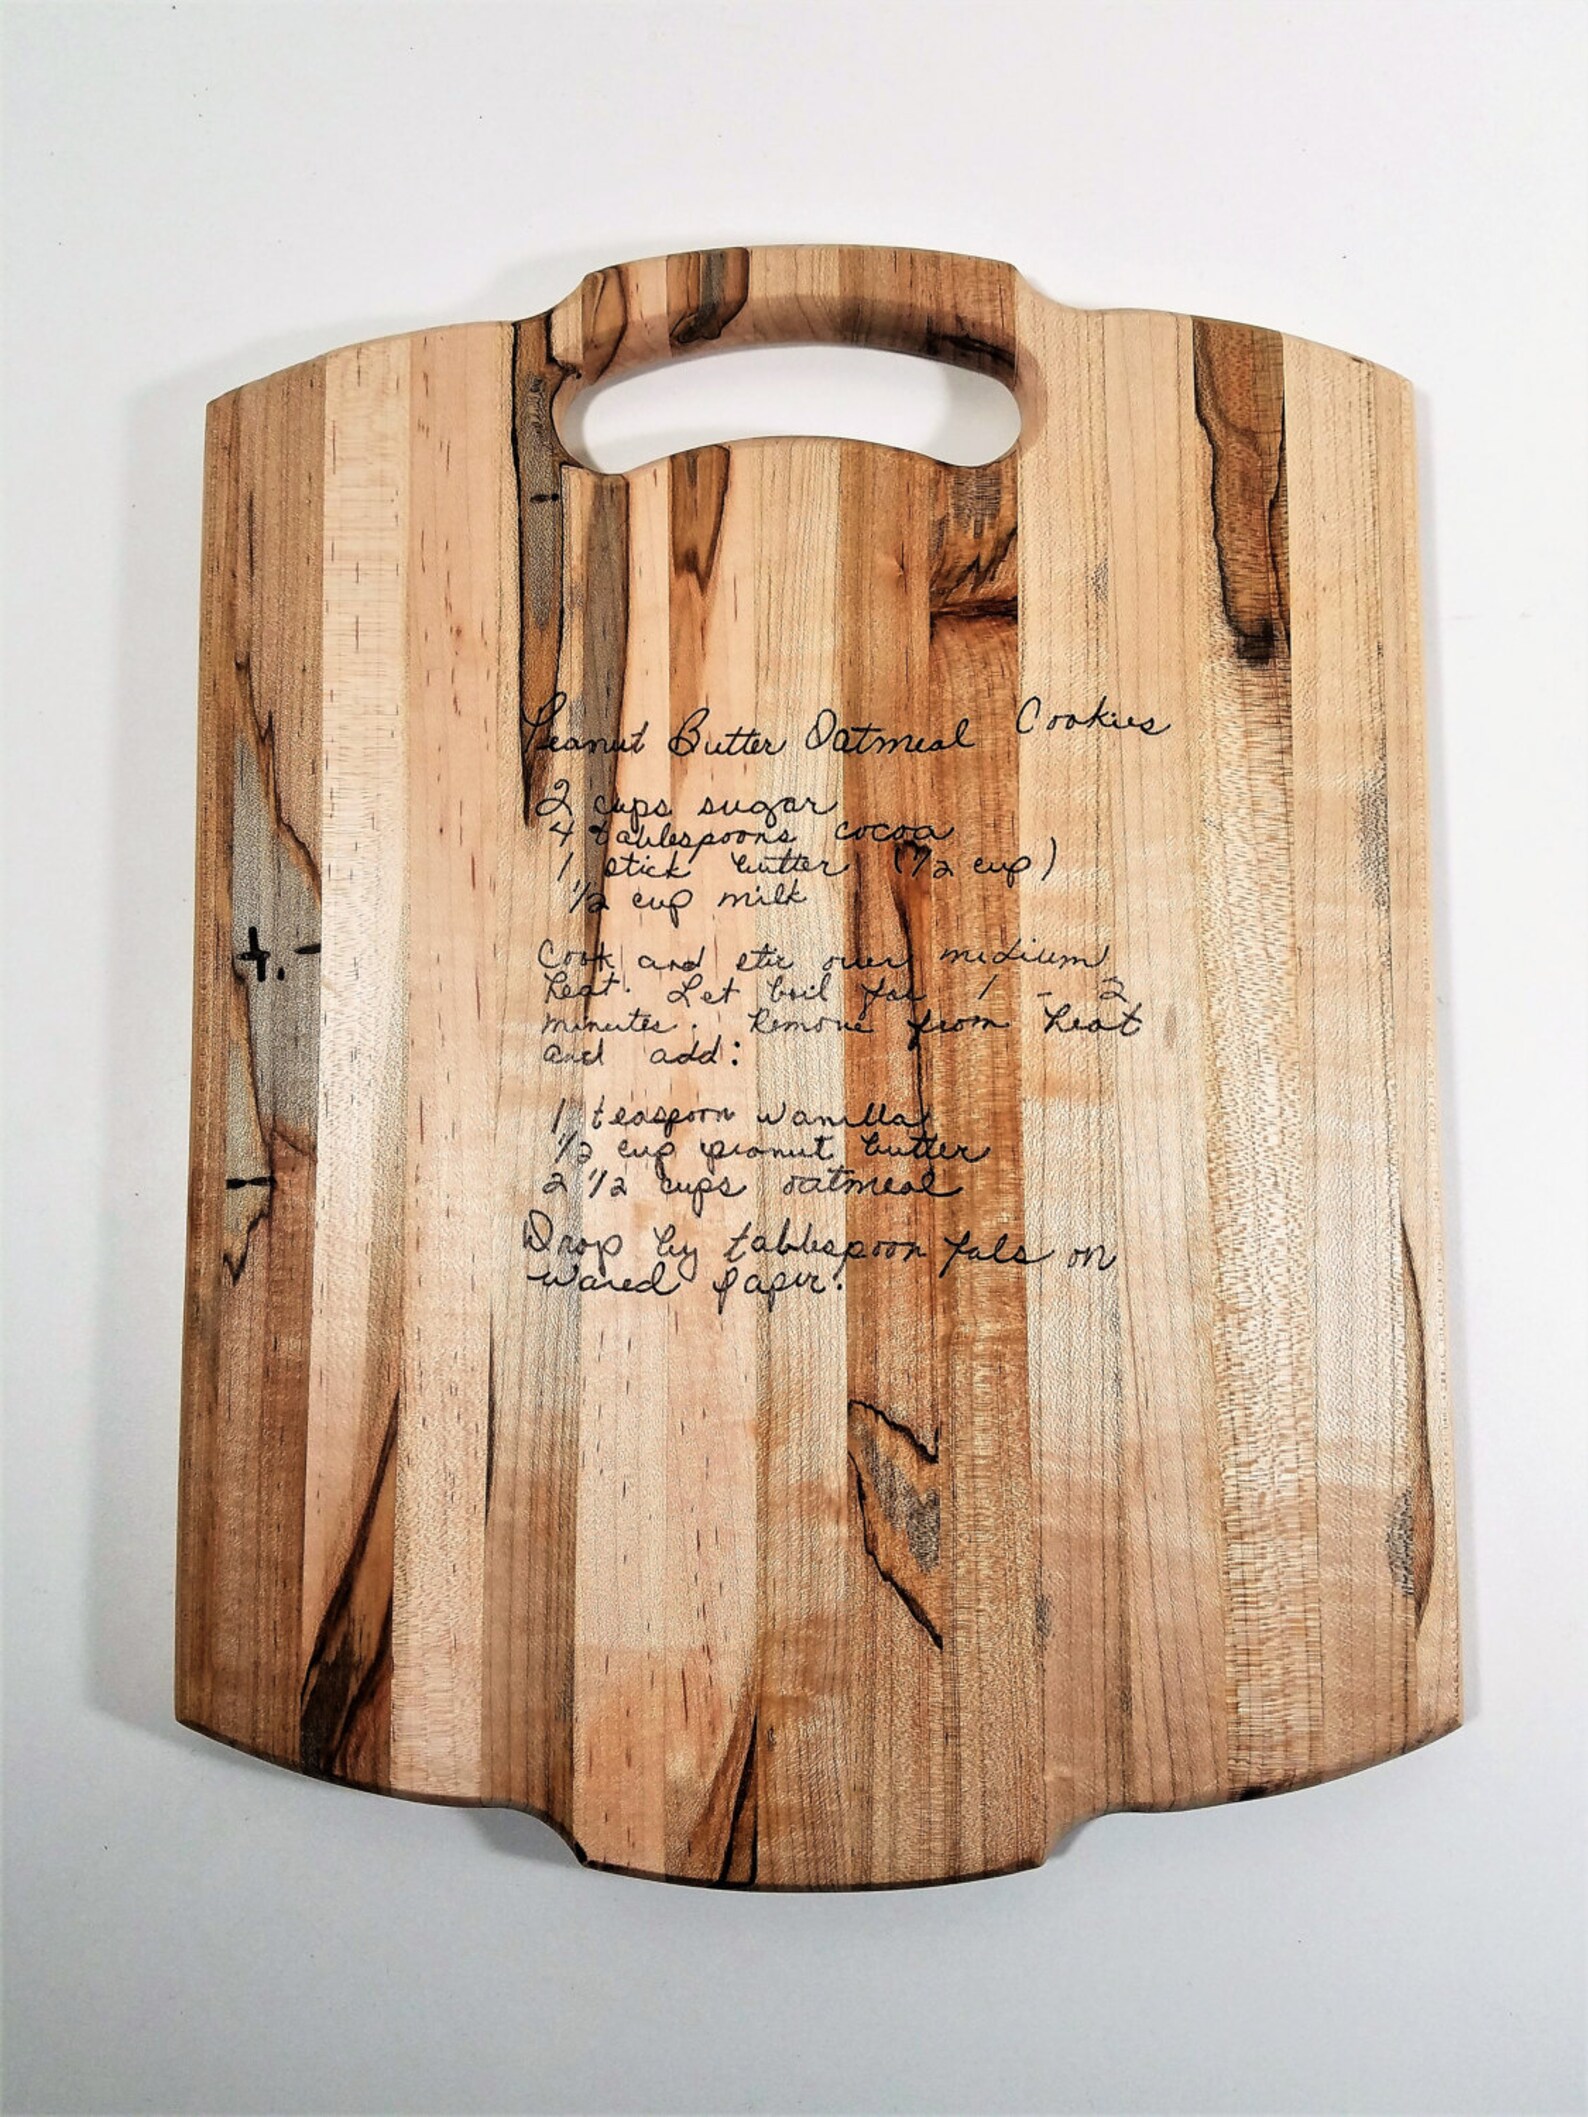 Peanut Butter Oatmeal Cookies
2 cups sugar
4 tablespoons cocoa
1 stick butter (1/2 cup)
1/2 cup milk
Cook and stir over medium
heat. Let boil for 1 - 2
minutes. Remove from heat
and add:
1 teaspoon vanilla
1/2 cup peanut butter
2 1/2 cups oatmeal
Drop by tablespoon fuls on
waxed paper.